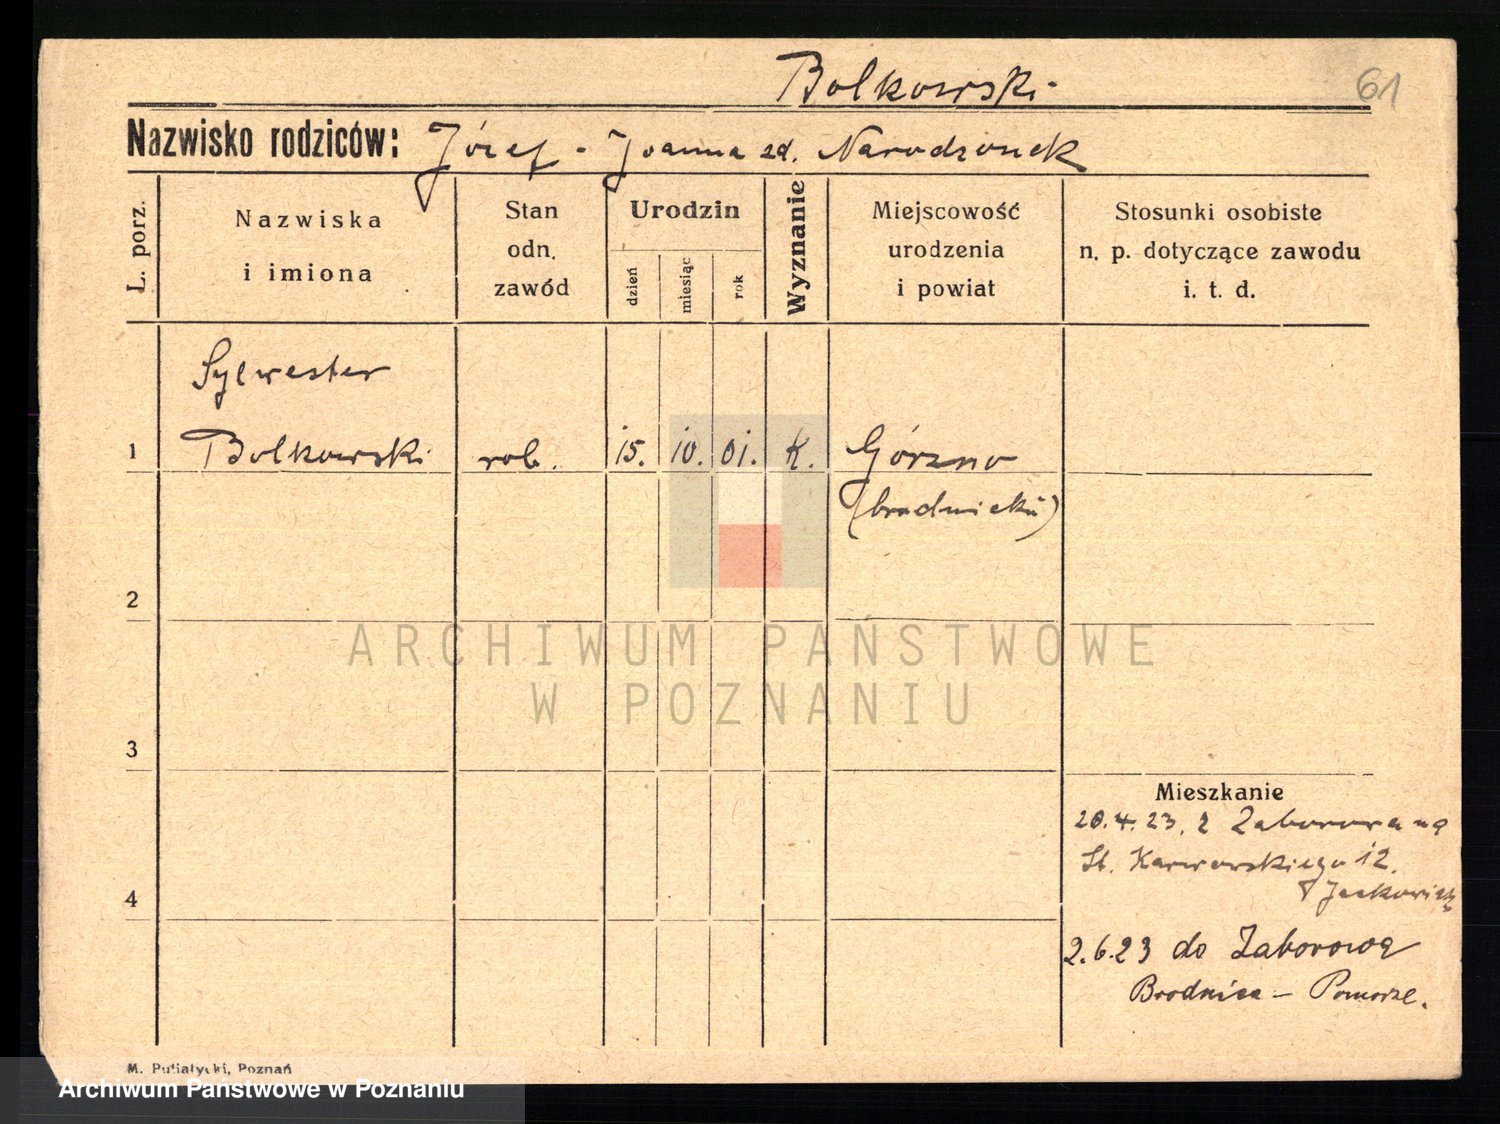 Bolkowski
61
Nazwisko rodziców: Józef - Joanna zd. Narodzonek
L. porz.
Nazwiska
i imiona
Stan
odn.
zawód
Urodzin
dzień
miesiąc
rok
Wyznanie
Miejscowość
urodzenia
i powiat
Stosunki osobiste
n. p. dotyczące zawodu
i. t. d.
Sylwester
1 Bolkowski rob. 15. 10. 01. K. Górzno
(brodnicki)
2
3
4
ARCHIWUM PAŃSTWOWE
W POZNANIU
Mieszkanie
20.4.23. z Zaborowa na
St. Karwowskiego 12.
2.6.23 do Zaborowa
Brodnica - Pomorze.
M. Putiatycki, Poznań
Archiwum Państwowe w Poznaniu